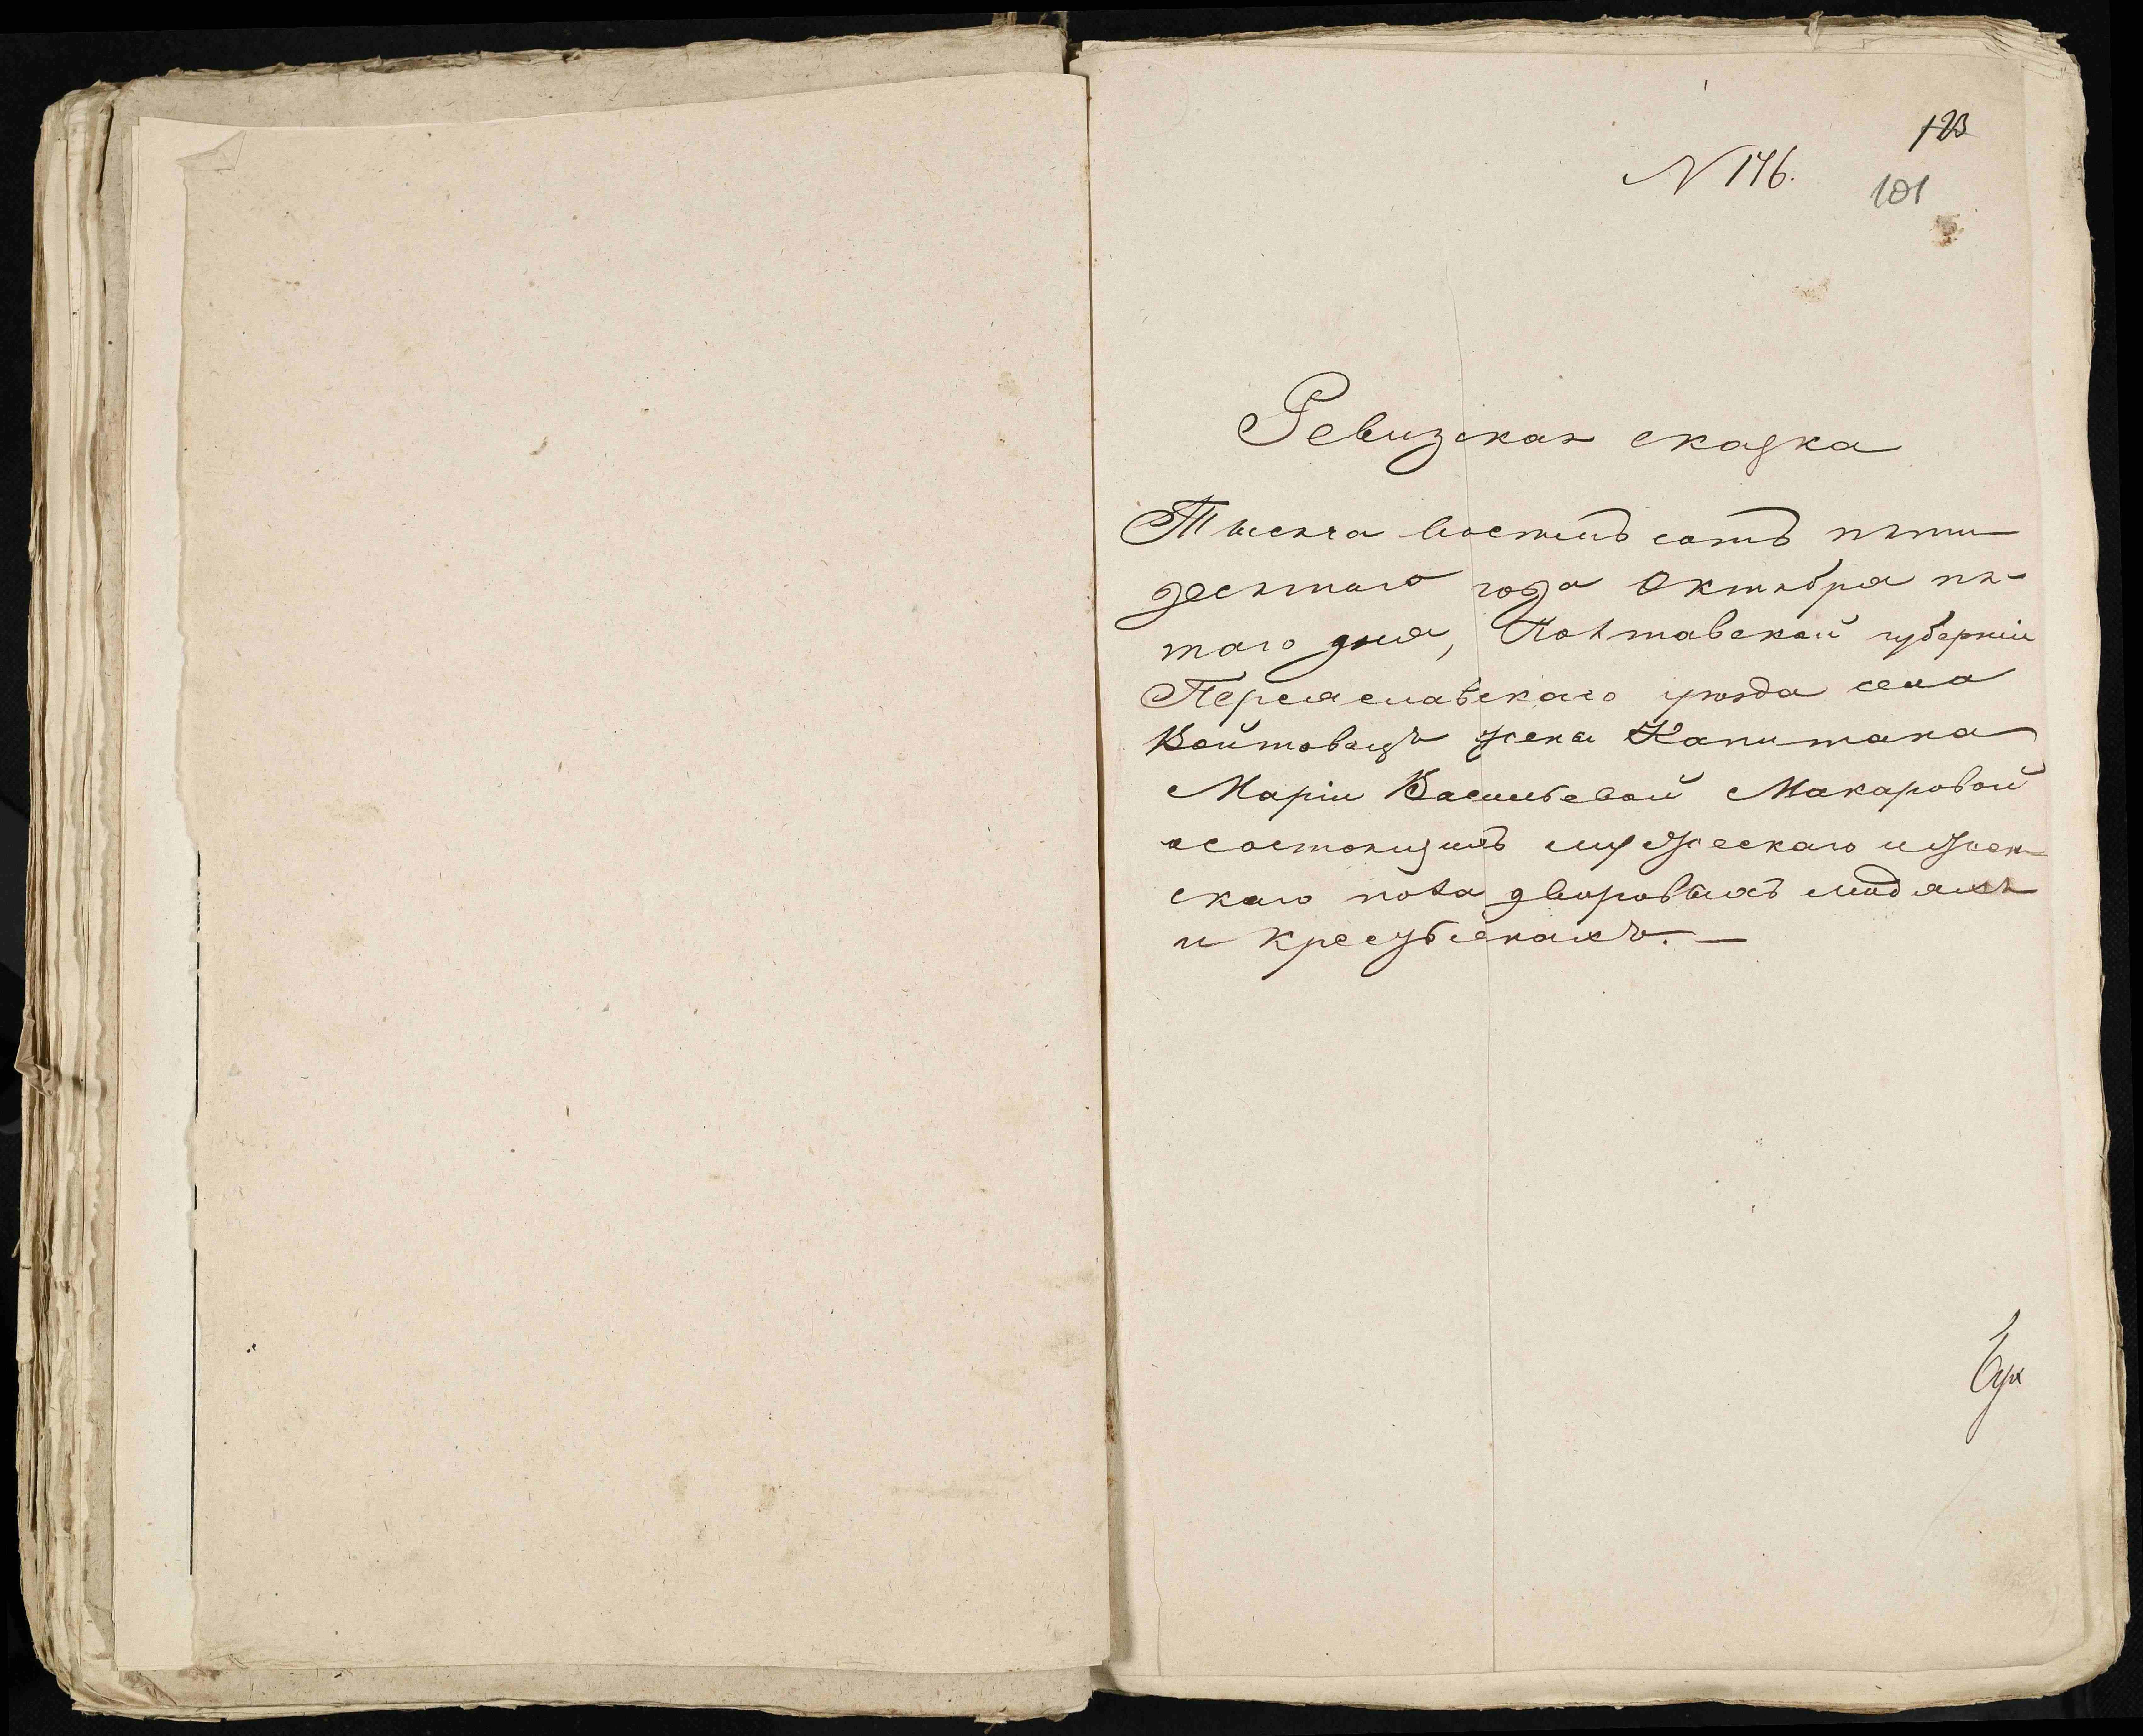 123
N 176.
101
Ревизская сказка
Тысяча восемь сотъ пяти
десятаго года Октября пя-
таго дня, Полтавской губерніи
Переяславскаго уѣзда села
Войтовецъ жены Капитана
Маріи Васильевой Макаровой
осостоящихъ мужескаго и жен
скаго пола дворовыхъ людяхъ
и крестьянахъ. —